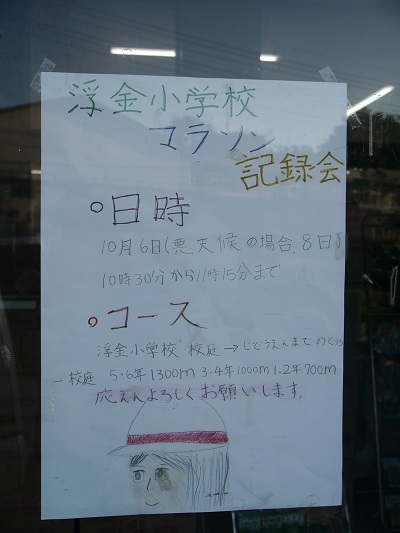 浮金小学校
マラソン
記録会
○日時
10月6日(悪天候の場合、8日)
10時30分から11時15分まで
○コース
浮金小学校 校庭→じどうえんまでのどうろ
→校庭 5・6年1300m 3・4年1000m 1・2年700m
応えんよろしくお願いします。